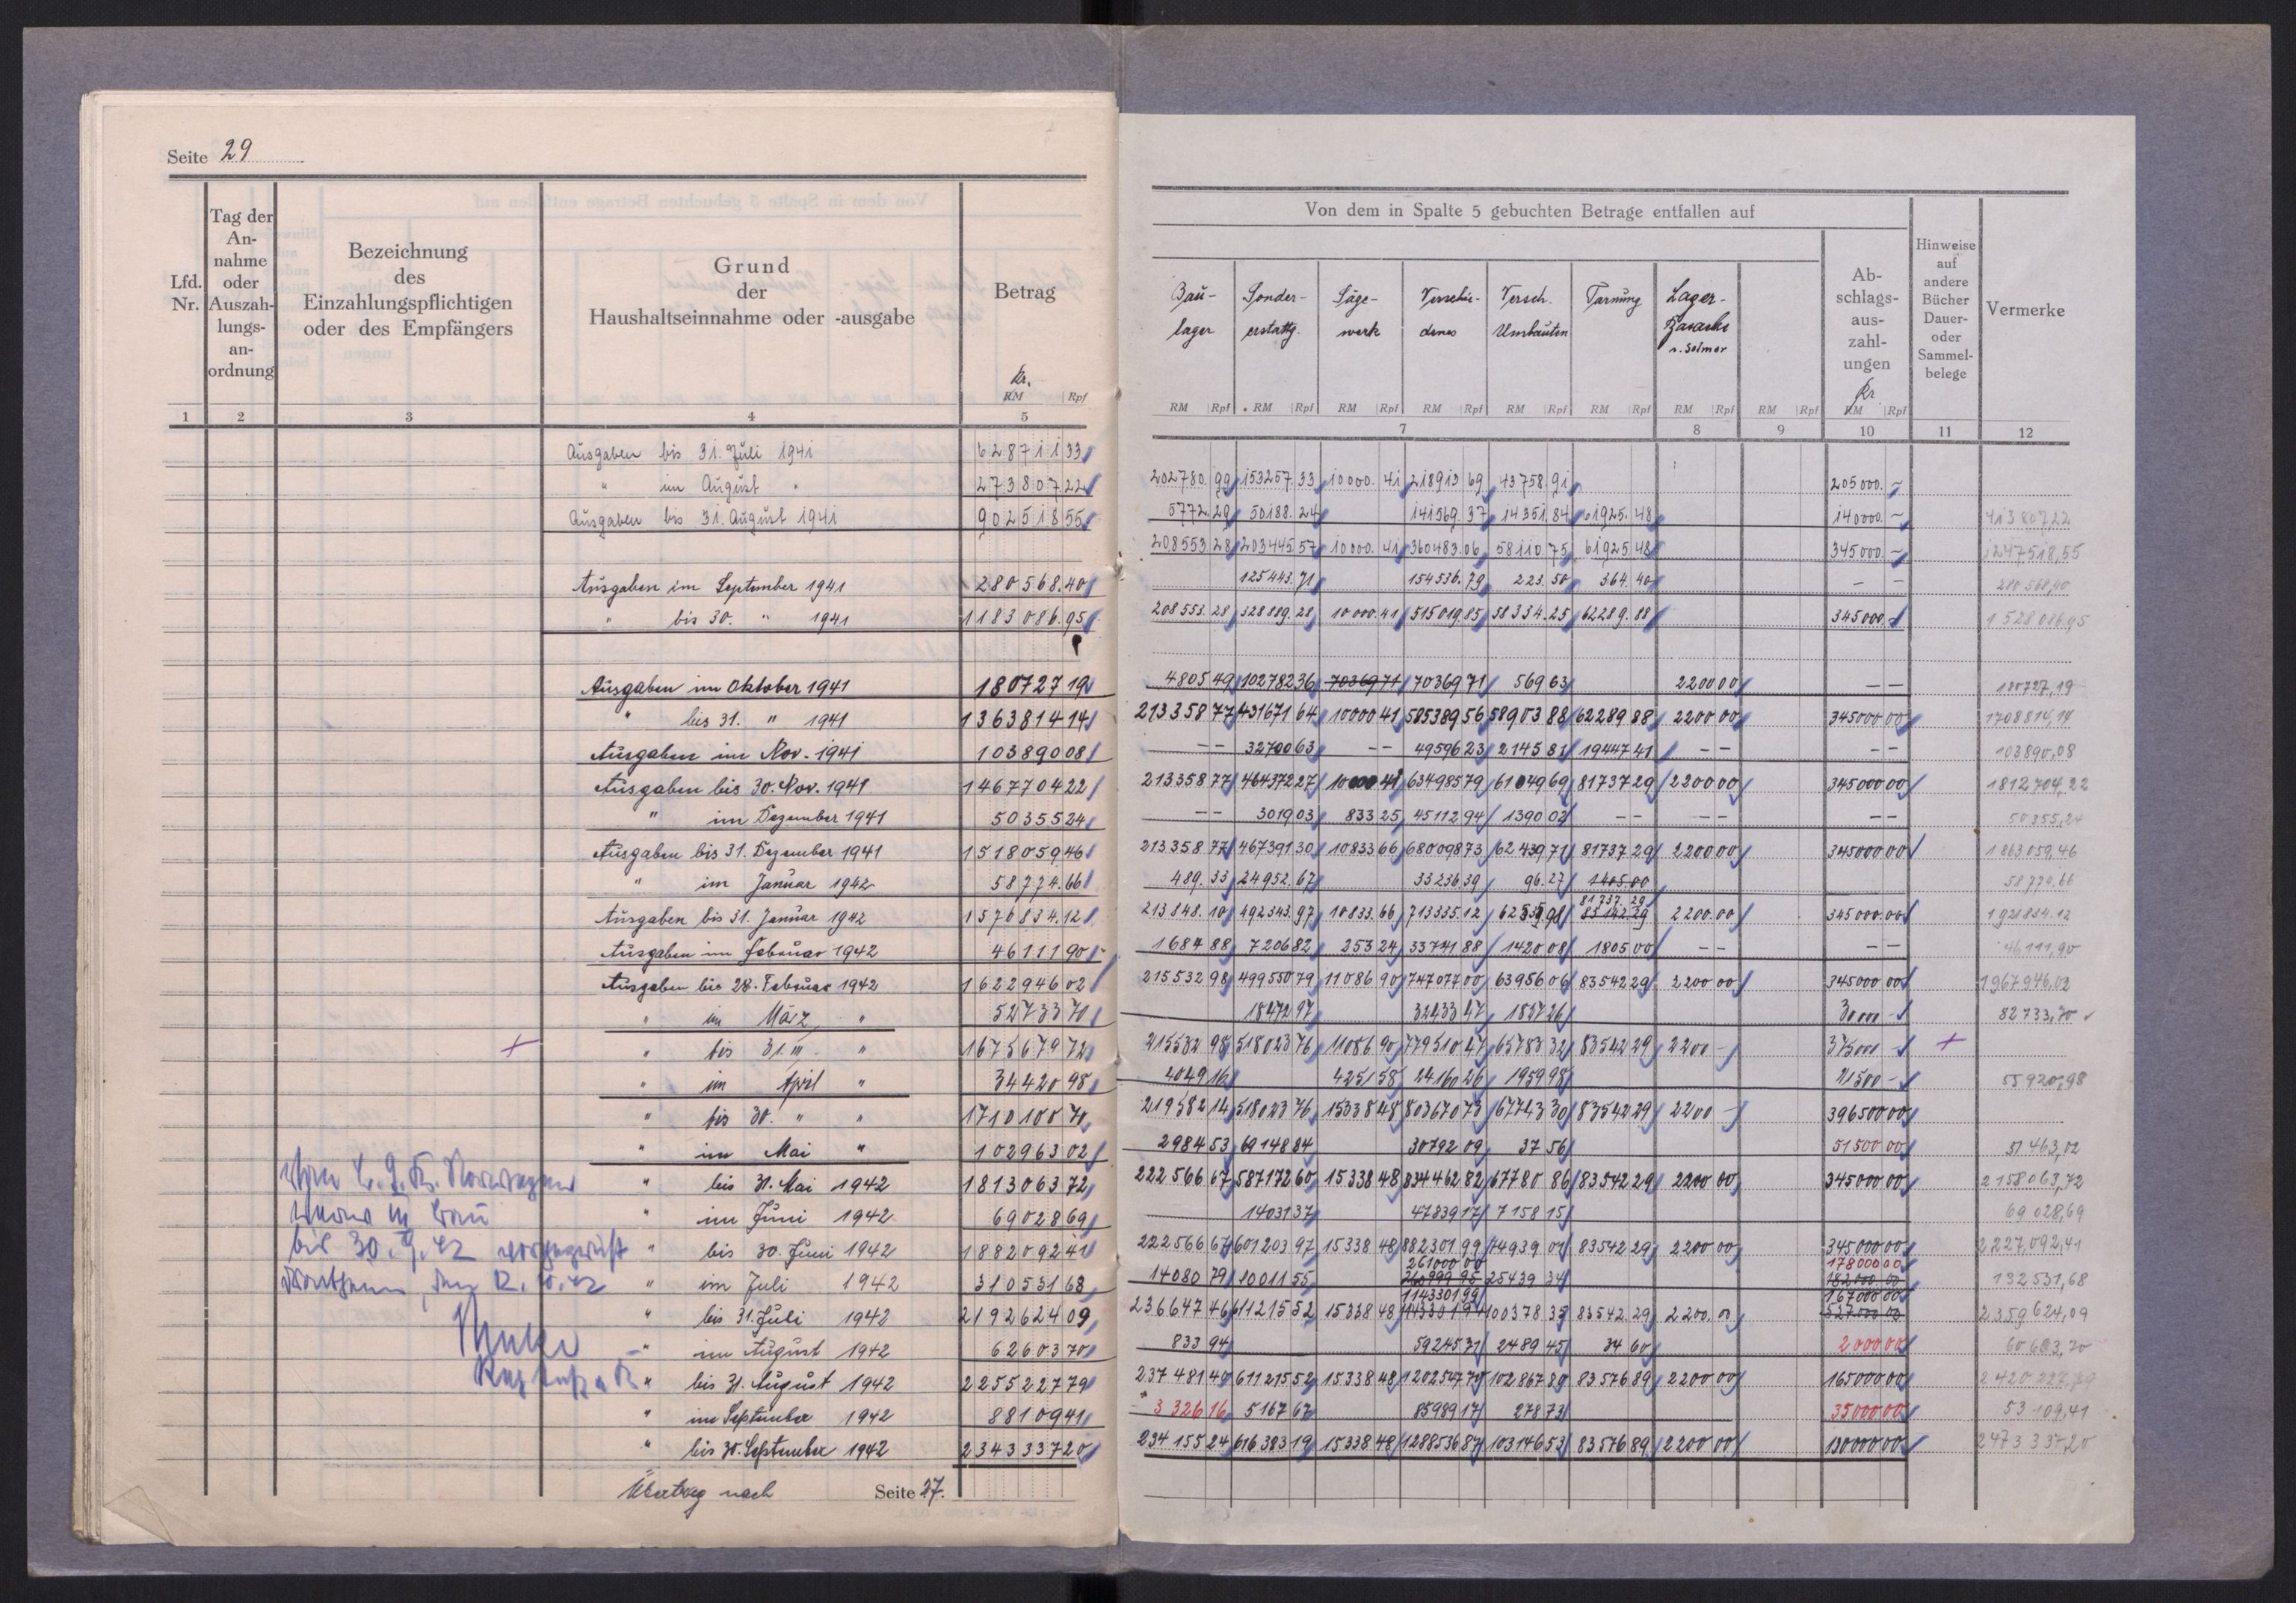 Seite 29
Lfd. Nr.
Tag der An-nahme oder Auszah-lungs-an-ordnung
Bezeichnung des Einzahlungspflichtigen oder des Empfängers
Grund der Haushaltseinnahme oder -ausgabe
Betrag
Kr.
RM Rpf
1 2 3 4 5
Ausgaben bis 31. Juli 1941 628711 33
" im August " 273807 22
Ausgaben bis 31. August 1941 902518 55
Ausgaben im September 1941 280568.40
" bis 30. " 1941 1183086.95
Ausgaben im Oktober 1941 180727 19
" bis 31. " 1941 1363814 14
Ausgaben im Nov. 1941 103890 08
Ausgaben bis 30. Nov. 1941 1467704 22
" im Dezember 1941 50355 24
Ausgaben bis 31. Dezember 1941 1518059 46
" im Januar 1942 58774.66
Ausgaben bis 31. Januar 1942 1576834.12
Ausgaben im Februar 1942 46111 90
Ausgaben bis 28. Februar 1942 1622946 02
" im März " 52733 70
" bis 31. III. " 1675679 72
" im April " 34420 98
" bis 30. " " 1710100 70
" im Mai " 102963 02
" bis 31. Mai 1942 1813063 72
" im Juni 1942 69028 69
" bis 30. Juni 1942 1882092 41
" im Juli 1942 310531 68
" bis 31. Juli 1942 2192624 09
" im August 1942 62603 70
" bis 31. August 1942 2255227 79
" im September 1942 88109 41
" bis 30. September 1942 2343337 20
Übertrag nach Seite 37.
bis 30.9.42
Von dem in Spalte 5 gebuchten Betrage entfallen auf
Bau-lager
Sonder-erstattg.
Säge-werk
Verschie-denes
Versch. Umbauten
Tarnung
Lager-Baracke
Ab-schlags-aus-zahl-ungen
Kr.
Hinweise auf andere Bücher Dauer- oder Sammel-belege
Vermerke
RM Rpf RM Rpf RM Rpf RM Rpf RM Rpf RM Rpf RM Rpf RM Rpf RM Rpf
7 8 9 10 11 12
202780.99 153257.33 10000.41 218913 69 43758.91 205000.-
5772.29 50188.24 141569.37 14351.84 61925.48 140000.- 413807 22
208553.28 203445.57 10000.41 360483.06 58110.75 61925.48 345000.- 1247518,55
125443.71 154536.79 223.50 364.40 - - 280568,40
208553.28 328889.28 10000.41 515019.85 58334.25 62289.88 345000.- 1528086,95
4805 49 102782 36 70369 71 70369 71 569 63 2200 00 - - 180727,19
213358 77 431671 64 10000 41 585389 56 58903 88 62289 88 2200 00 345000 00 1708814,14
- - 32700 63 - - 49596 23 2145 81 19447 41 - - - - 103890,08
213358 77 464372 27 10000 41 634985 79 61049 69 81737 29 2200 00 345000 00 1812704,22
- - 3019 03 833 25 45112 94 1390 02 - - - - - - 50355,24
213358 77 467391 30 10833 66 680098 73 62439 71 81737 29 2200 00 345000 00 1863059,46
489.33 24952.67 33236 39 96.27 1405.00 58774.66
81737.29
213848.10 492343.97 10833.66 713335.12 62535.98 83142 29 2200.00 345000.00 1921834.12
1684 88 7206 82 253 24 33741 88 1420 08 1805 00 - - - - 46111,90
215532 98 499550 79 11086 90 747077 00 63956 06 83542 29 2200 00 345000 00 1967946,02
18472 97 32433 47 1827 26 30000 - 82733,70
215532 98 518023 76 11086 90 779510 47 65783 32 83542 29 2200 - 375000 -
4049 16 4251 58 24160 26 1959 98 21500 - 55920,98
219582 14 518023 76 15338 48 803670 73 67743 30 83542 29 2200 - 396500 00
2984 53 69148 84 30792 09 37 56 51500 00 51463,02
222566 67 587172 60 15338 48 834462 82 67780 86 83542 29 2200 00 345000 00 2158063,72
14031 37 47839 17 7158 15 69028,69
222566 67 601203 97 15338 48 882301 99 74939 01 83542 29 2200 00 345000 00 2227092,41
261000 00 178000 00
14080 79 10011 55 260999 95 25439 34 182000.00 132531,68
1143301 99 167000 00
236647 46 611215 52 15338 48 100378 35 83542 29 2200.00 527000 00 2359624,09
833 94 59245 71 2489 45 34 60 2000 00 60603,70
237481 40 611215 52 15338 48 1202547 70 102867 80 83576 89 2200 00 165000 00 2420227,79
- 3326 16 5167 67 85989 17 278 73 35000 00 53109,41
234155 24 616383 19 15338 48 1288536 87 103146 53 83576 89 2200 00 130000 00 2473337,20